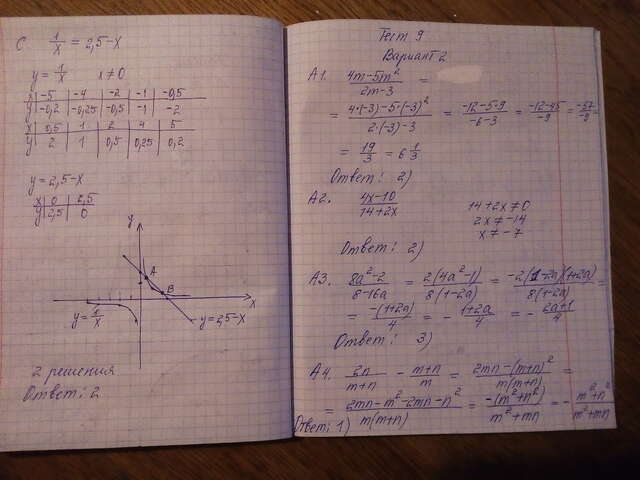 С 1/x = 2,5-x
y = 1/x x≠0
x -5 -4 -2 -1 -0,5
y -0,2 -0,25 -0,5 -1 -2
x 0,5 1 2 4 5
y 2 1 0,5 0,25 0,2
y = 2,5-x
x 0 2,5
y 2,5 0
y
A
B
x
y = 1/x
y = 2,5-x
2 решения
Ответ: 2
Тест 9
Вариант 2
А1. (4m-5m²)/(2m-3) =
= (4·(-3)-5·(-3)²)/(2·(-3)-3) = (-12-5·9)/(-6-3) = (-12-45)/(-9) = (-57)/(-9) =
= 19/3 = 6 1/3
Ответ: 2)
А2. (4x-10)/(14+2x) 14+2x≠0
2x≠-14
x≠-7
Ответ: 2)
А3. (8a²-2)/(8-16a) = 2(4a²-1)/8(1-2a) = -2(1-2a)(1+2a)/8(1-2a) =
= -(1+2a)/4 = - (1+2a)/4 = - (2a+1)/4
Ответ: 3)
А4. 2n/(m+n) - (m+n)/m = (2mn-(m+n)²)/m(m+n) =
= (2mn-m²-2mn-n²)/m(m+n) = -(m²+n²)/(m²+mn) = - (m²+n²)/(m²+mn)
Ответ: 1)